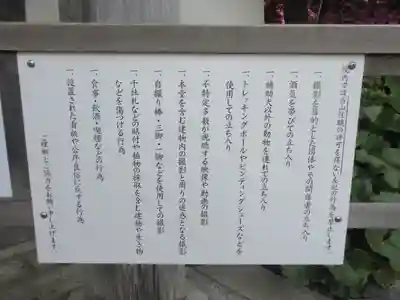 境内では当山住職の許可を得ない左記の行為を禁止します。
一、撮影を目的とした団体やその関係者の立ち入り
一、酒気を帯びての立ち入り
一、補助犬以外の動物を連れての立ち入り
一、トレッキングポールやビンディングシューズなどを
使用しての立ち入り
一、不特定多数が視聴する映像や動画の撮影
一、本堂を含む建物内の撮影と周りの迷惑となる撮影
一、自撮り棒・三脚・一脚などを使用しての撮影
一、千社札などの貼付や植物の採取を含む建物や生き物
などを傷つける行為
一、食事・飲酒・喫煙などの行為
一、設置された看板や公序良俗に反する行為
ご理解とご協力をお願い申し上げます。